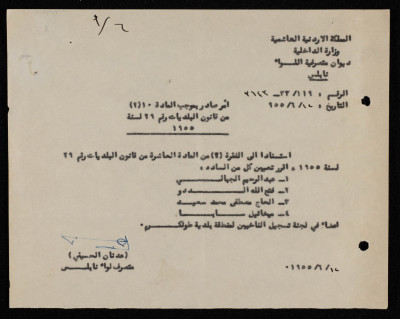 ٢/٦
المملكة الاردنية الهاشمية
وزارة الداخلية
ديوان متصرفية اللواء
نابلس
الرقم : ٣٣/١١٩
التاريخ : ٩٥٥/٦/١٨
أمر صادر بموجب المادة ١٠(٢)
من قانون البلديات رقم ٢٩ لسنة
١٩٥٥
استنادا الى الفقرة (٢) من المادة العاشرة من قانون البلديات رقم ٢٩
لسنة ١٩٥٥ ، اقرر تعيين كل من السادة :
١- عبد الرحيم الجيالـــي
٢- فتح الله الـــــدو
٣- الحاج مصطفى محمد سعيـــد
٤- ميخائيل ســـابـــا
اعضاء في لجنة تسجيل الناخبين لمنطقة بلدية طولكـــرم ٠
(عدنان الحسيني)
متصرف لواء نابلـــس
١٩٥٥/٦/١٨